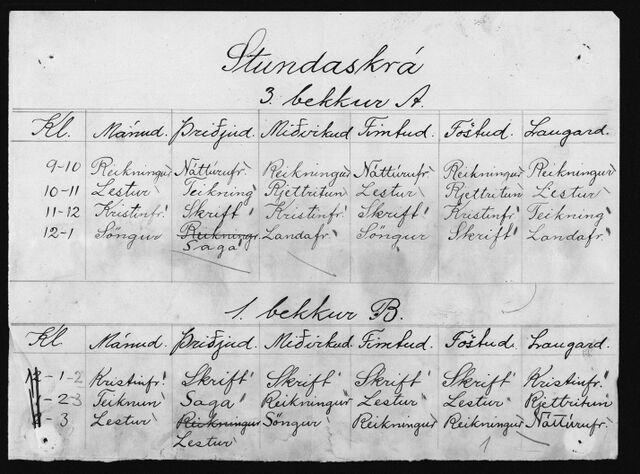 Stundaskrá
3. bekkur A.
Kl. Mánud. Þriðjud. Miðvikud. Fimtud. Föstud. Laugard.
9-10 Reikningur Náttúrufr. Reikningur Náttúrufr. Reikningur Reikningur
10-11 Lestur Teikning Rjettritun Lestur Rjettritun Lestur
11-12 Kristinfr. Skrift Kristinfr. Skrift Kristinfr. Teikning
12-1 Söngur Reikningur Landafr. Söngur Skrift Landafr.
Saga
1. bekkur B.
Kl. Mánud. Þriðjud. Miðvikud. Fimtud. Föstud. Laugard.
1-2 Kristinfr. Skrift Skrift Skrift Skrift Kristinfr.
2-3 Teiknun Saga Reikningur Lestur Lestur Rjettritun
-3 Lestur Reikningur Söngur Reikningur Reikningur Náttúrufr.
Lestur